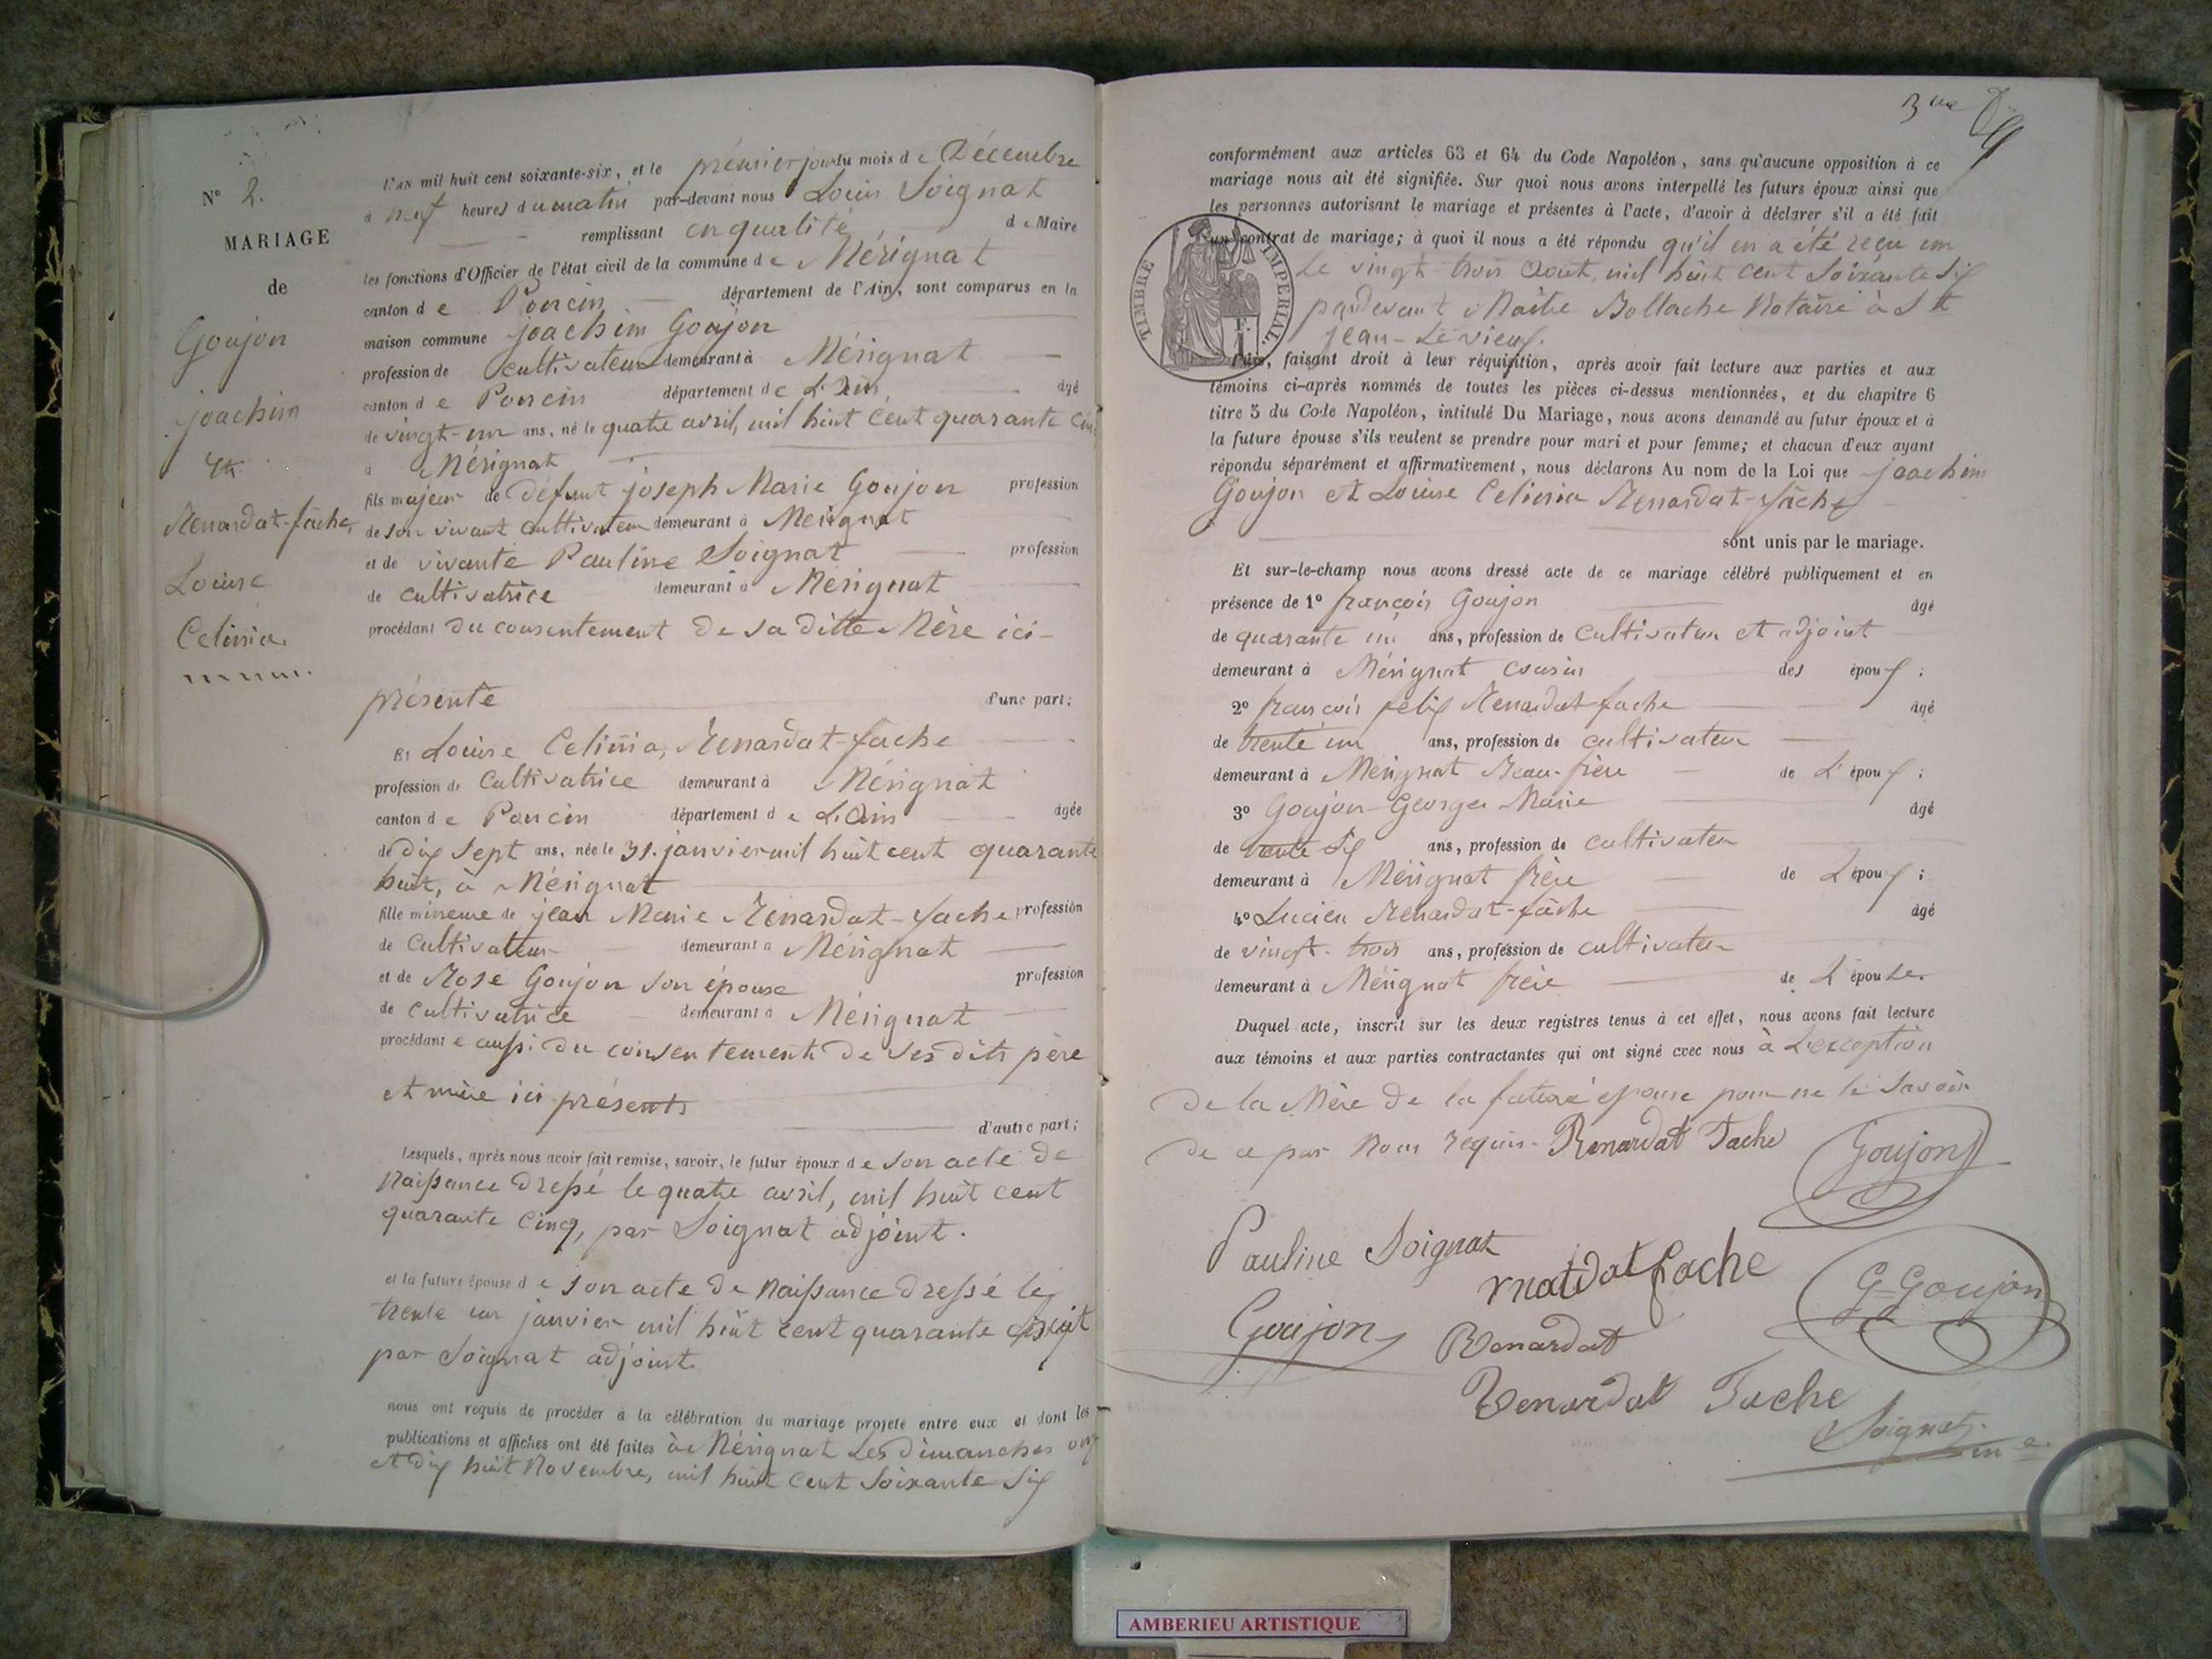 N° 2.
MARIAGE
de
Goujon
joachim
et
Renardat-fâche,
Louise
Celinia.
L'AN mil huit cent soixante-six, et le prémier jour du mois de Décembre
à neuf heures du matin par-devant nous Louis Soignat
remplissant en qualité de Maire
les fonctions d'Officier de l'état civil de la commune de Mérignat
canton de Poncin département de l'Ain, sont comparus en la
maison commune joachim Goujon
profession de cultivateur demeurant à Mérignat
canton de Poncin département de L'Ain âgé
de vingt-un ans, né le quatre avril, mil huit cent quarante cinq
à Mérignat
fils majeur de défunt joseph Marie Goujon profession
de son vivant cultivateur demeurant à Merignat
et de vivante Pauline Soignat profession
de cultivatrice demeurant à Mérignat
procédant du consentement de sa ditte Mère ici-
présente d'une part;
Et Louise Celinia, Renardat-fache
profession de Cultivatrice demeurant à Mérignat
canton de Poncin département de L'Ain âgée
de dix sept ans, née le 31. janvier mil huit cent quarante
huit, à Mérignat
fille mineure de jean Marie Renardat-fache profession
de Cultivateur demeurant à Mérignat
et de Rose Goujon son épouse profession
de cultivatrice demeurant à Mérignat
procédant e aussi du consentement de ses dits père
et mère ici présents
d'autre part;
Lesquels, après nous avoir fait remise, savoir, le futur époux de son acte de
Naissance dressé le quatre avril, mil huit cent
quarante cinq, par Soignat adjoint.
et la future épouse de son acte de Naissance dressé le
trente un janvier mil huit cent quarante huit
par Soignat adjoint.
nous ont requis de procéder à la célébration du mariage projeté entre eux et dont les
publications et affiches ont été faites à Mérignat Les dimanches onze
et dix huit Novembre, mil huit cent soixante six
conformément aux articles 63 et 64 du Code Napoléon, sans qu'aucune opposition à ce
mariage nous ait été signifiée. Sur quoi nous avons interpellé les futurs époux ainsi que
les personnes autorisant le mariage et présentes à l'acte, d'avoir à déclarer s'il a été fait
un contrat de mariage; à quoi il nous a été répondu qu'il en a été reçu un
Le vingt-trois Août mil huit cent soixante six
pardevant Maître Bollache Notaire à St
jean-Le vieux.
TIMBRE IMPERIAL.
Puis, faisant droit à leur réquisition, après avoir fait lecture aux parties et aux
témoins ci-après nommés de toutes les pièces ci-dessus mentionnées, et du chapitre 6
titre 5 du Code Napoléon, intitulé Du Mariage, nous avons demandé au futur époux et à
la future épouse s'ils veulent se prendre pour mari et pour femme; et chacun d'eux ayant
répondu séparément et affirmativement, nous déclarons Au nom de la Loi que joachim
Goujon et Louise Celinia Renardat-fâche
sont unis par le mariage.
Et sur-le-champ nous avons dressé acte de ce mariage célébré publiquement et en
présence de 1° françois Goujon âgé
de quarante un ans, profession de cultivateur et adjoint
demeurant à Mérignat cousin des époux;
2° françois felix Renardat-fache âgé
de trente un ans, profession de cultivateur
demeurant à Mérignat Beau-frère de L'époux;
3° Goujon Georges Marie âgé
de trente six ans, profession de cultivateur
demeurant à Mérignat frère de L'époux;
4° Lucien Renardat-fâche âgé
de vingt-trois ans, profession de cultivateur
demeurant à Mérignat frère de L'épouse.
Duquel acte, inscrit sur les deux registres tenus à cet effet, nous avons fait lecture
aux témoins et aux parties contractantes qui ont signé avec nous à L'exception
de la Mère de la future épouse pour ne le savoir
de ce par Nous requis. Renardat Fache Goujon
Pauline Soignat
rnatdat fache G Goujon
Goujon Renardat
Renardat Fache
Soignat.
AMBERIEU ARTISTIQUE